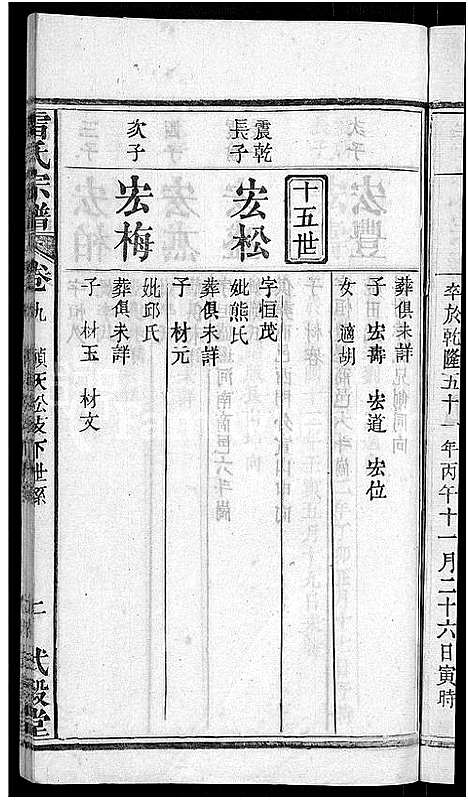 卒於乾隆五十一年丙午十一月二十六日寅時
葬俱未詳
子四 宏壽 宏道 宏位
女 適胡
十五世
震乾
長子
宏松
字恒茂
妣熊氏
葬俱未詳
子 材元
次子
宏梅
妣邱氏
葬俱未詳
子 材玉 材文
雷氏宗譜
卷九
下世系
二
式穀堂